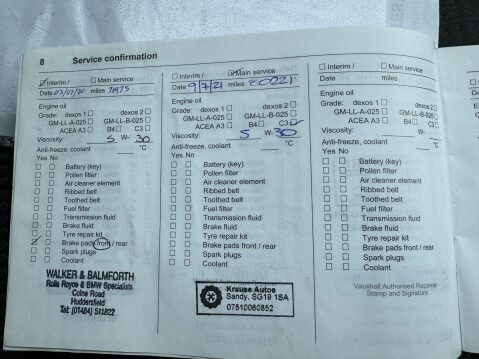 8 Service confirmation
Interim / Main service
Date 03/07/20 miles
Engine oil
Grade: dexos 1 dexos 2
GM-LL-A-025 GM-LL-B-025
ACEA A3 B4 C3
Viscosity: 5 W- 30
Anti-freeze, coolant °C
Yes No
Battery (key)
Pollen filter
Air cleaner element
Ribbed belt
Toothed belt
Fuel filter
Transmission fluid
Brake fluid
Tyre repair kit
Brake pads front / rear
Spark plugs
Coolant
WALKER & BALMFORTH
Rolls Royce & BMW Specialists
Colne Road
Huddersfield
Tel: (01484) 511822
Interim / Main service
Date 9/7/21 miles
Engine oil
Grade: dexos 1 dexos 2
GM-LL-A-025 GM-LL-B-025
ACEA A3 B4 C3
Viscosity: 5 W- 30
Anti-freeze, coolant °C
Yes No
Battery (key)
Pollen filter
Air cleaner element
Ribbed belt
Toothed belt
Fuel filter
Transmission fluid
Brake fluid
Tyre repair kit
Brake pads front / rear
Spark plugs
Coolant
Krause Autos
Sandy, SG19 1SA
07510060852
Interim / Main service
Date miles
Engine oil
Grade: dexos 1 dexos 2
GM-LL-A-025 GM-LL-B-025
ACEA A3 B4 C3
Viscosity: W-
Anti-freeze, coolant °C
Yes No
Battery (key)
Pollen filter
Air cleaner element
Ribbed belt
Toothed belt
Fuel filter
Transmission fluid
Brake fluid
Tyre repair kit
Brake pads front / rear
Spark plugs
Coolant
Vauxhall Authorised Repairer
Stamp and Signature